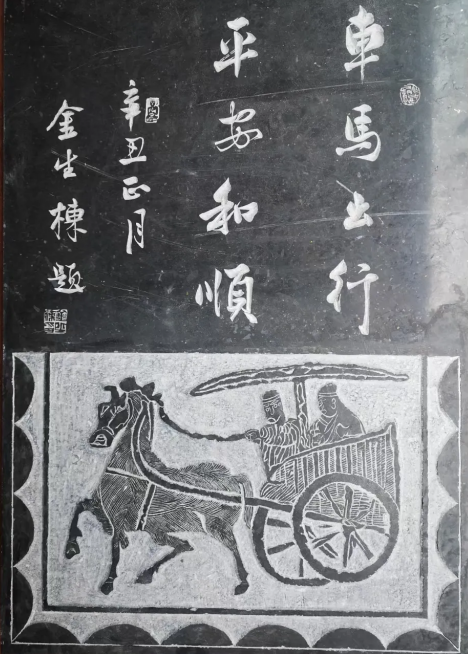 車馬出行
平安和順
辛丑正月
金生棟題